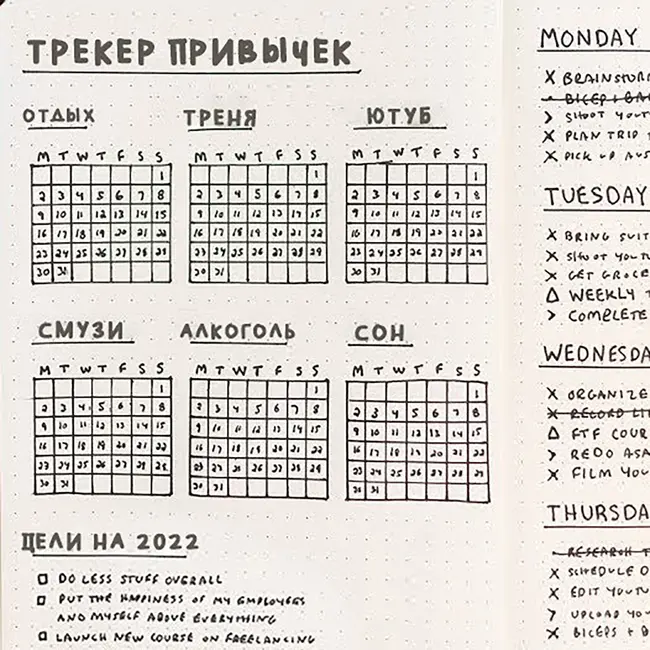 ТРЕКЕР ПРИВЫЧЕК
ОТДЫХ
M T W T F S S
1
2 3 4 5 6 7 8
9 10 11 12 13 14 15
16 17 18 19 20 21 22
23 24 25 26 27 28 29
30 31
ТРЕНЯ
M T W T F S S
1
2 3 4 5 6 7 8
9 10 11 12 13 14 15
16 17 18 19 20 21 22
23 24 25 26 27 28 29
30 31
ЮТУБ
M T W T F S S
1
2 3 4 5 6 7 8
9 10 11 12 13 14 15
16 17 18 19 20 21 22
23 24 25 26 27 28 29
30 31
СМУЗИ
M T W T F S S
1
2 3 4 5 6 7 8
9 10 11 12 13 14 15
16 17 18 19 20 21 22
23 24 25 26 27 28 29
30 31
АЛКОГОЛЬ
M T W T F S S
1
2 3 4 5 6 7 8
9 10 11 12 13 14 15
16 17 18 19 20 21 22
23 24 25 26 27 28 29
30 31
СОН
M T W T F S S
1
2 3 4 5 6 7 8
9 10 11 12 13 14 15
16 17 18 19 20 21 22
23 24 25 26 27 28 29
30 31
ЦЕЛИ НА 2022
DO LESS STUFF OVERALL
PUT THE HAPPINESS OF MY EMPLOYEES
AND MYSELF ABOVE EVERYTHING
LAUNCH NEW COURSE ON FREELANCING
MONDAY
X BRAINSTOR
BICEP + BA
> SHOOT YOUT
X PLAN TRIP T
X PICK UP AUS
TUESDAY
X BRING SUIT
X SHOOT YOUTU
X GET GROCE
Δ WEEKLY T
> COMPLETE
WEDNESDA
X ORGANIZE
X RECORD LI
Δ FTF COUR
> REDO ASA
X FILM YOU
THURSDA
RESEARCH T
X SCHEDULE O
X EDIT YOUTU
> UPLOAD YOU
X BICEPS + B